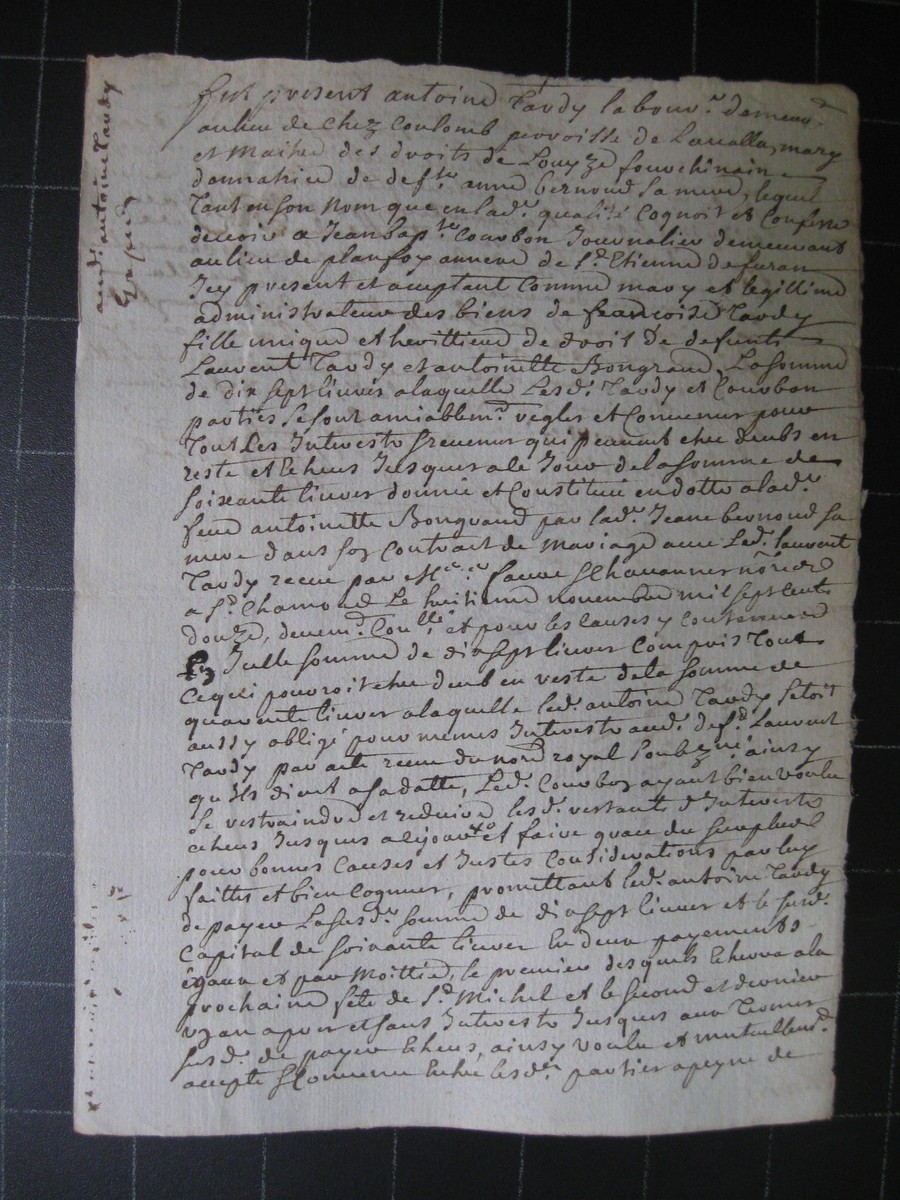 fut present antoine Tardy labour.r demeur.t
au lieu de Chez Coulomb parroisse de Lavalla, mary
et Maitre des droits de Louyze fourchinain
donnatrice de deff.te anne bernoud sa mere, lequel
Tant en son Nom que en lad.e qualité Cognoit et Confesse
devoir a Jean bap.te Courbon Journalier demeurant
au lieu de planfoy annexe de S.t Etienne de furan
Icy present et aceptant Comme mary et legittime
administrateur des biens de francoise Tardy
fille unique et herittiere de droit de defunts
Laurent Tardy et antoinette Bongrand, La somme
de dix sept livres a laquelle Lesd. Tardy et Courbon
parties se sont amiablem.t regles et Convenus pour
Tout Les Interests qui peuvent etre deubs en
reste et Echeus Jusques a le Jour de la somme de
soixante livres donnée et Constituée en dotte a lad.e
feue antoinette Bongrand par lad.e Jeanne bernoud sa
mere dans son Contract de Mariage avec Led. laurent
Tardy receu par et Chavannes no.res
a S.t Chamond Le huitieme novembre mil sept cents
douze, et pour les causes y contenues
En Icelle somme de dix sept livres Compris Tout
Ce qui pourroit etre deub en reste de la somme de
quarente livres a laquelle led. antoine Tardy setoit
aussy obligé pour memes Interests aud. def.t Laurent
Tardy par acte receu du no.re royal Soubz.né ainsy
qu'ils dient a sa datte, Led. Courbon ayant bien voulu
se restraindre et reduire lesd. restants d'Interests
echeus Jusques a ce jour et faire grace du surplus
pour bonnes Causes et Justes Considerations par luy
faittes et bien Cognues, promettant led. antoine Tardy
de payer La susd.e somme de dix sept livres et le susd.
Capital de soixante livres En deux payements
égaux et par Moittié, le premier desquels Echerra a la
prochaine fete de S.t Michel et le second et dernier
un an apres et sans Interests Jusques aux Termes
susd. de payer Echeus, ainsy voulu et mutuellem.t
acepté Convenu Entre lesd. parties a peyne de
aud. antoine Tardy